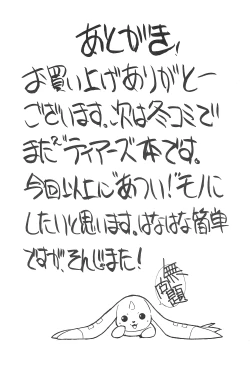 あとがき、
お買い上げありがとー
ございます。次は冬コミで
また"ティマーズ本です。
今回以上に"あつい!"モノに
したいと思います。はなはな簡単
ですが、そんじまた!
無問題